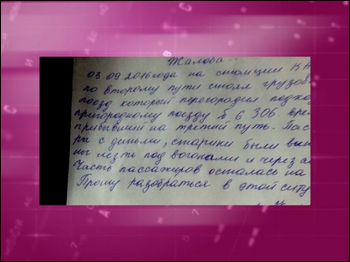 Жалоба
03.09.2016 года на станции КА
по второму пути стоял грузов
поезд который перегородил подход
пригородному поезду № 6306. вре
прибывший на третий путь. Пас
ры с детьми, старики были вын
ны лезть под вагонами и через а
Часть пассажиров осталась на
Прошу разобраться в этой ситу